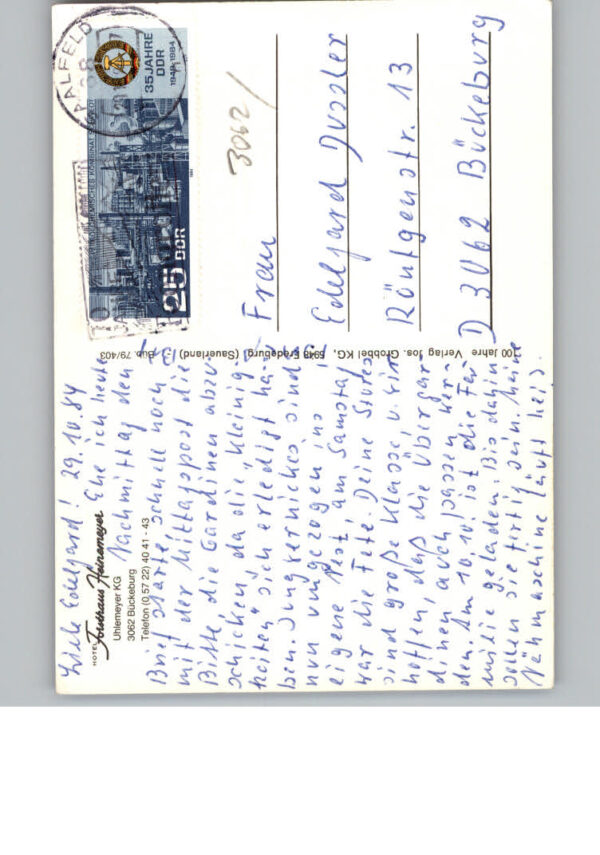 Liebe Edelgard! 29.10.84
HOTEL Forsthaus Heinemeyer
Uhlemeyer KG
3062 Bückeburg
Telefon (0 57 22) 40 41 - 43
Ehe ich heute
Nachmittag den
Brief starte, schnell noch
mit der Mittagspost die
Bitte die Gardinen abzu
schicken, da die „Kleinig-
keiten" sich erledigt ha-
ben. Jungverniches sind
nun umgezogen ins
eigene Nest, am Samstag
war die Fete. Deine Stores
sind große Klasse u. wir
hoffen, daß die Übergar
dinen auch passen wer-
den. Am 10.10. ist die Fa-
milie geladen. Bis dahin
sollen sie fertig sein. Meine
Nähmaschine läuft heiß.
100 Jahre Verlag Jos. Grobbel KG, 5948 Fredeburg (Sauerland) Büb. 79/403
AALFELD
35 JAHRE
DDR
1949-1984
25 DDR
3062/
Frau
Edelgard Dussler
Röntgenstr. 13
D 3062 Bückeburg